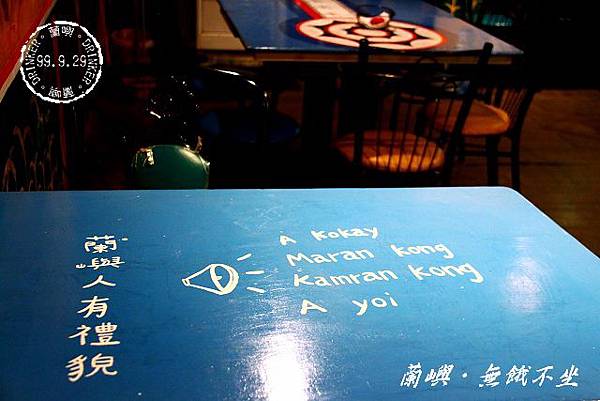 蘭嶼
DRINKER
99.9.29
DRINKER
蘭嶼
蘭嶼人有禮貌
A Kokay
Maran kong
Kamran Kong
A yoi
蘭嶼・無餓不坐